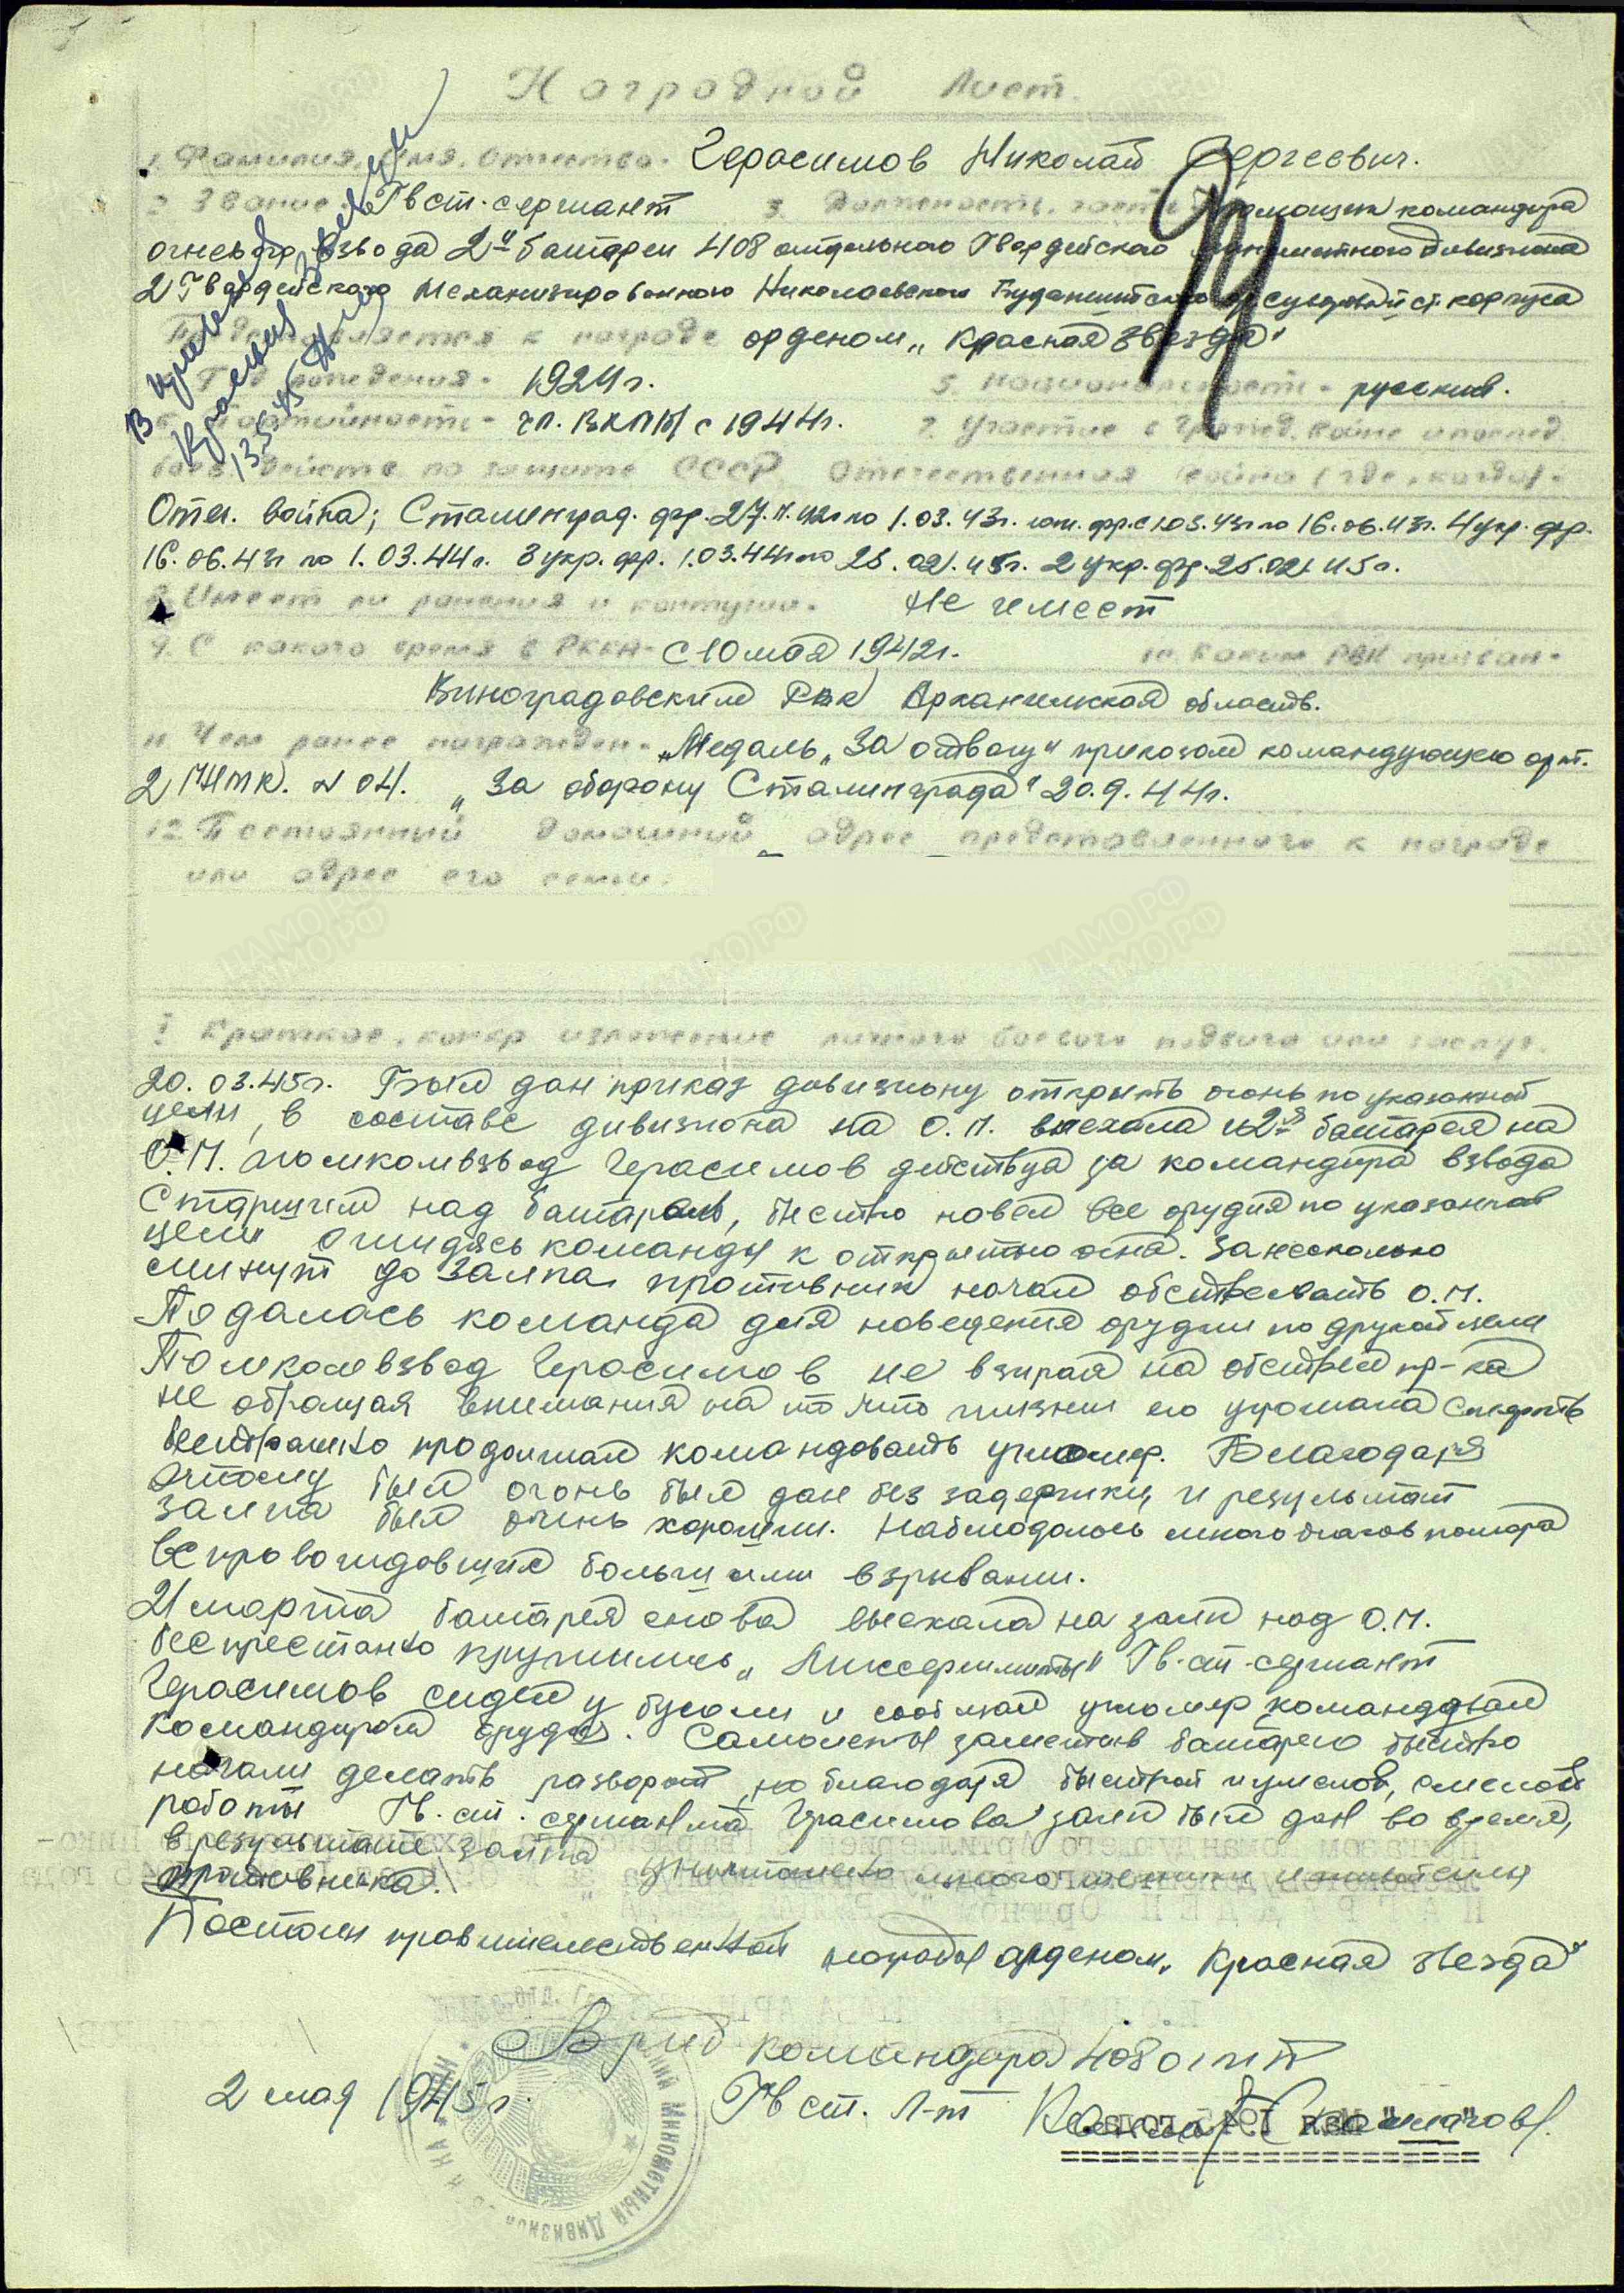 Наградной Лист.
1. Фамилия, Имя, Отчество - Герасимов Николай Сергеевич.
2. Звание - Гв ст. сержант 3. Должность, часть Помощник командира
огневого взвода 2й батареи 408 отдельного Гвардейского минометного дивизиона
2 Гвардейского Механизированного Николаевского Будапештского корпуса
Представляется к награде орденом „Красная звезда"
4. Год рождения - 1924 г. 5. Национальность - русский.
6. Партийность - чл. ВКП(б) с 1944г. 7. Участие в Гражд. войне и послед.
боев. действ по защите СССР. Отечественная война (где, когда) -
Отеч. война; Сталинград. фр. 27.11.42г по 1.03.43г. юж. фр. с 1.03.43г по 16.06.43г. 4 укр. фр.
16.06.43г по 1.03.44г. 3 укр. фр. 1.03.44г по 25.02.45г. 2 укр. фр. 25.02.45г.
8. Имеет ли ранения и контузии - Не имеет
9. С какого время в РККА - с 10 мая 1942г. 10. Каким РВК призван -
Виноградовским Рвк Архангельской область.
11. Чем ранее награжден - „Медаль „За отвагу" приказом командующего арт.
2 ГМК. № 04. „За оборону Сталинграда" 20.9.44г.
12. Постоянный домашний адрес представленного к награде
или адрес его семьи.
I Краткое, конкр изложение личного боевого подвига или заслуг.
20.03.45г. Был дан приказ дивизиону открыть огонь по указанной
цели, в составе дивизиона на О.П. выехала и 2я батарея на
О.П. помкомвзвод Герасимов действуя за командира взвода
Старшим над батареей, быстро навел все орудия по указанной
цели ожидаясь команды к открытию огня. За несколько
минут до залпа противник начал обстреливать О.П.
Подалась команда для наведения орудии по другой цели
Помкомвзвод Герасимов не взирая на обстрел пр-ка
не обращая внимания на то что жизни его угрожала смерть
бесстрашно продолжал командовать угломер. Благодаря
этому был огонь был дан без задержки, и результат
залпа был очень хорошим. Наблюдалось много очагов пожара
вспровождовшие большими взрывами.
21 марта батарея снова выехала на залп над О.П.
беспрестанно кружились „Миссершмиты" Гв. ст. сержант
Герасимов сидел у бусоли и угломер командовал
командиром орудия. Самолеты заметив батарею быстро
начали делать разворот, но благодаря быстрой и умелой, смелой
работы Гв. ст. сержанта Герасимова залп был дан во время,
в результате залпа уничтожено много техники и
противника.
Достоин правительственной награды орденом „Красная звезда"
Врид командира 408 огмд
2 мая 1945г. Гв ст. л-т
В приказ
Красная Звезда
13.5.45
МИНОМЕТНЫЙ ДИВИЗИОН
ЦАМО.РФ